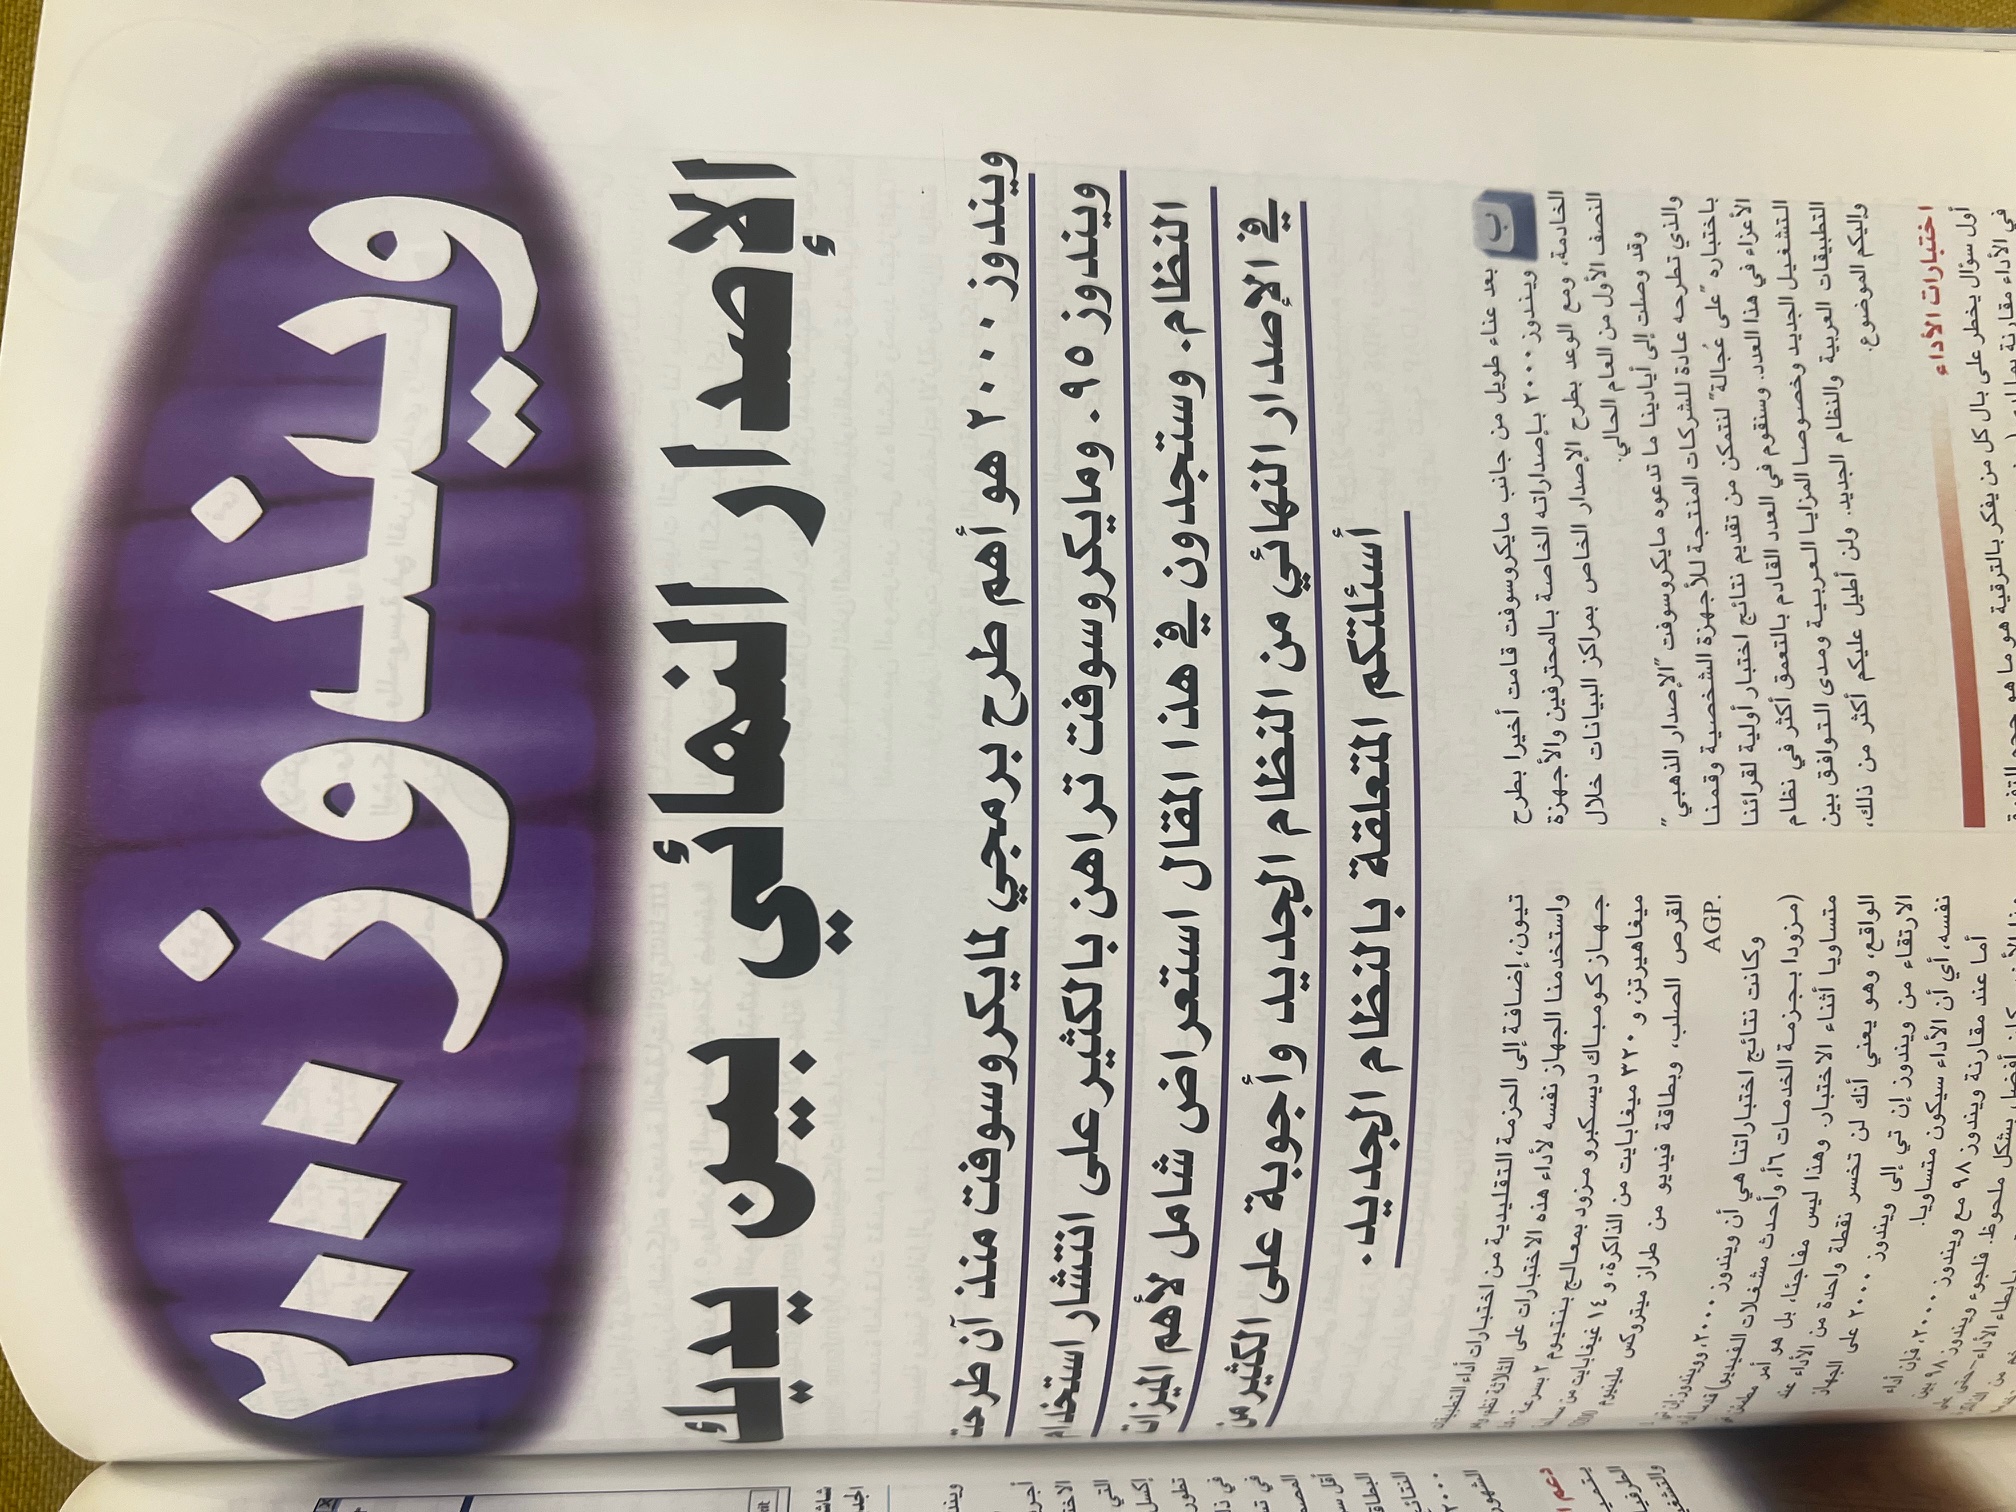 ويندوز ٢٠٠٠
الإصدار النهائي بين يديك
ويندوز ٢٠٠٠ هو أهم طرح برمجي لمايكروسوفت منذ آن طرحت
ويندوز ٩٥. ومايكروسوفت تراهن بالكثير على انتشار استخدام
النظام. وستجدون في هذا المقال استعراض شامل لأهم الميزات
في الإصدار النهائي من النظام الجديد وأجوبة على الكثير من
أسئلتكم المتعلقة بالنظام الجديد.
ب
بعد عناء طويل من جانب مايكروسوفت قامت أخيرا بطرح
ويندوز ٢٠٠٠ بإصداراته الخاصة بالمحترفين والأجهزة
الخادمة، ومع الوعد بطرح الإصدار الخاص بمراكز البيانات خلال
النصف الأول من العام الحالي.
وقد وصلت إلى أيادينا ما تدعوه مايكروسوفت "الإصدار الذهبي"
والذي تطرحه عادة للشركات المنتجة للأجهزة الشخصية وقمنا
باختباره "على عُجالة" لنتمكن من تقديم نتائج اختبار أولية لقرائنا
الأعزاء في هذا العدد. وسنقوم في العدد القادم بالتعمق أكثر في نظام
التشغيل الجديد وخصوصا المزايا العربية ومدى التوافق بين
التطبيقات العربية والنظام الجديد. ولن أطيل عليكم أكثر من ذلك،
وإليكم الموضوع.
اختبارات الأداء
أول سؤال يخطر على بال كل من يفكر بالترقية هو ما هو حجم
في الأداء مقارنة بما
تيون، إضافة إلى الحزمة التقليدية من اختبارات أداء التطبيقات
واستخدمنا الجهاز نفسه لأداء هذه الاختبارات على الثلاثة
جهاز كومباك ديسكبرو مزود بمعالج بنتيوم ٢ بسرعة
ميغاهيرتز، و ٣٢٠ ميغابايت من الذاكرة، و ١٤ غيغابايت من
القرص الصلب، وبطاقة فيديو من طراز ميتروكس ملينيوم
AGP.
وكانت نتائج اختباراتنا هي أن ويندوز ٢٠٠٠، وويندوز إن تي
(مزودا بحزمة الخدمات ٦أ، وأحدث مشغلات الفيديو) قدما
متساويا أثناء الاختبار. وهذا ليس مفاجئا، بل هو أمر مطمئن
الواقع، وهو يعني أنك لن تخسر نقطة واحدة من الأداء عند
الارتقاء من ويندوز إن تي إلى ويندوز ٢٠٠٠ على الجهاز
نفسه، أي أن الأداء سيكون متساويا.
أما عند مقارنة ويندوز ٩٨ مع ويندوز ٢٠٠٠، فإن أداء
أفضل بشكل ملحوظ. فلجوء ويندوز ٩٨